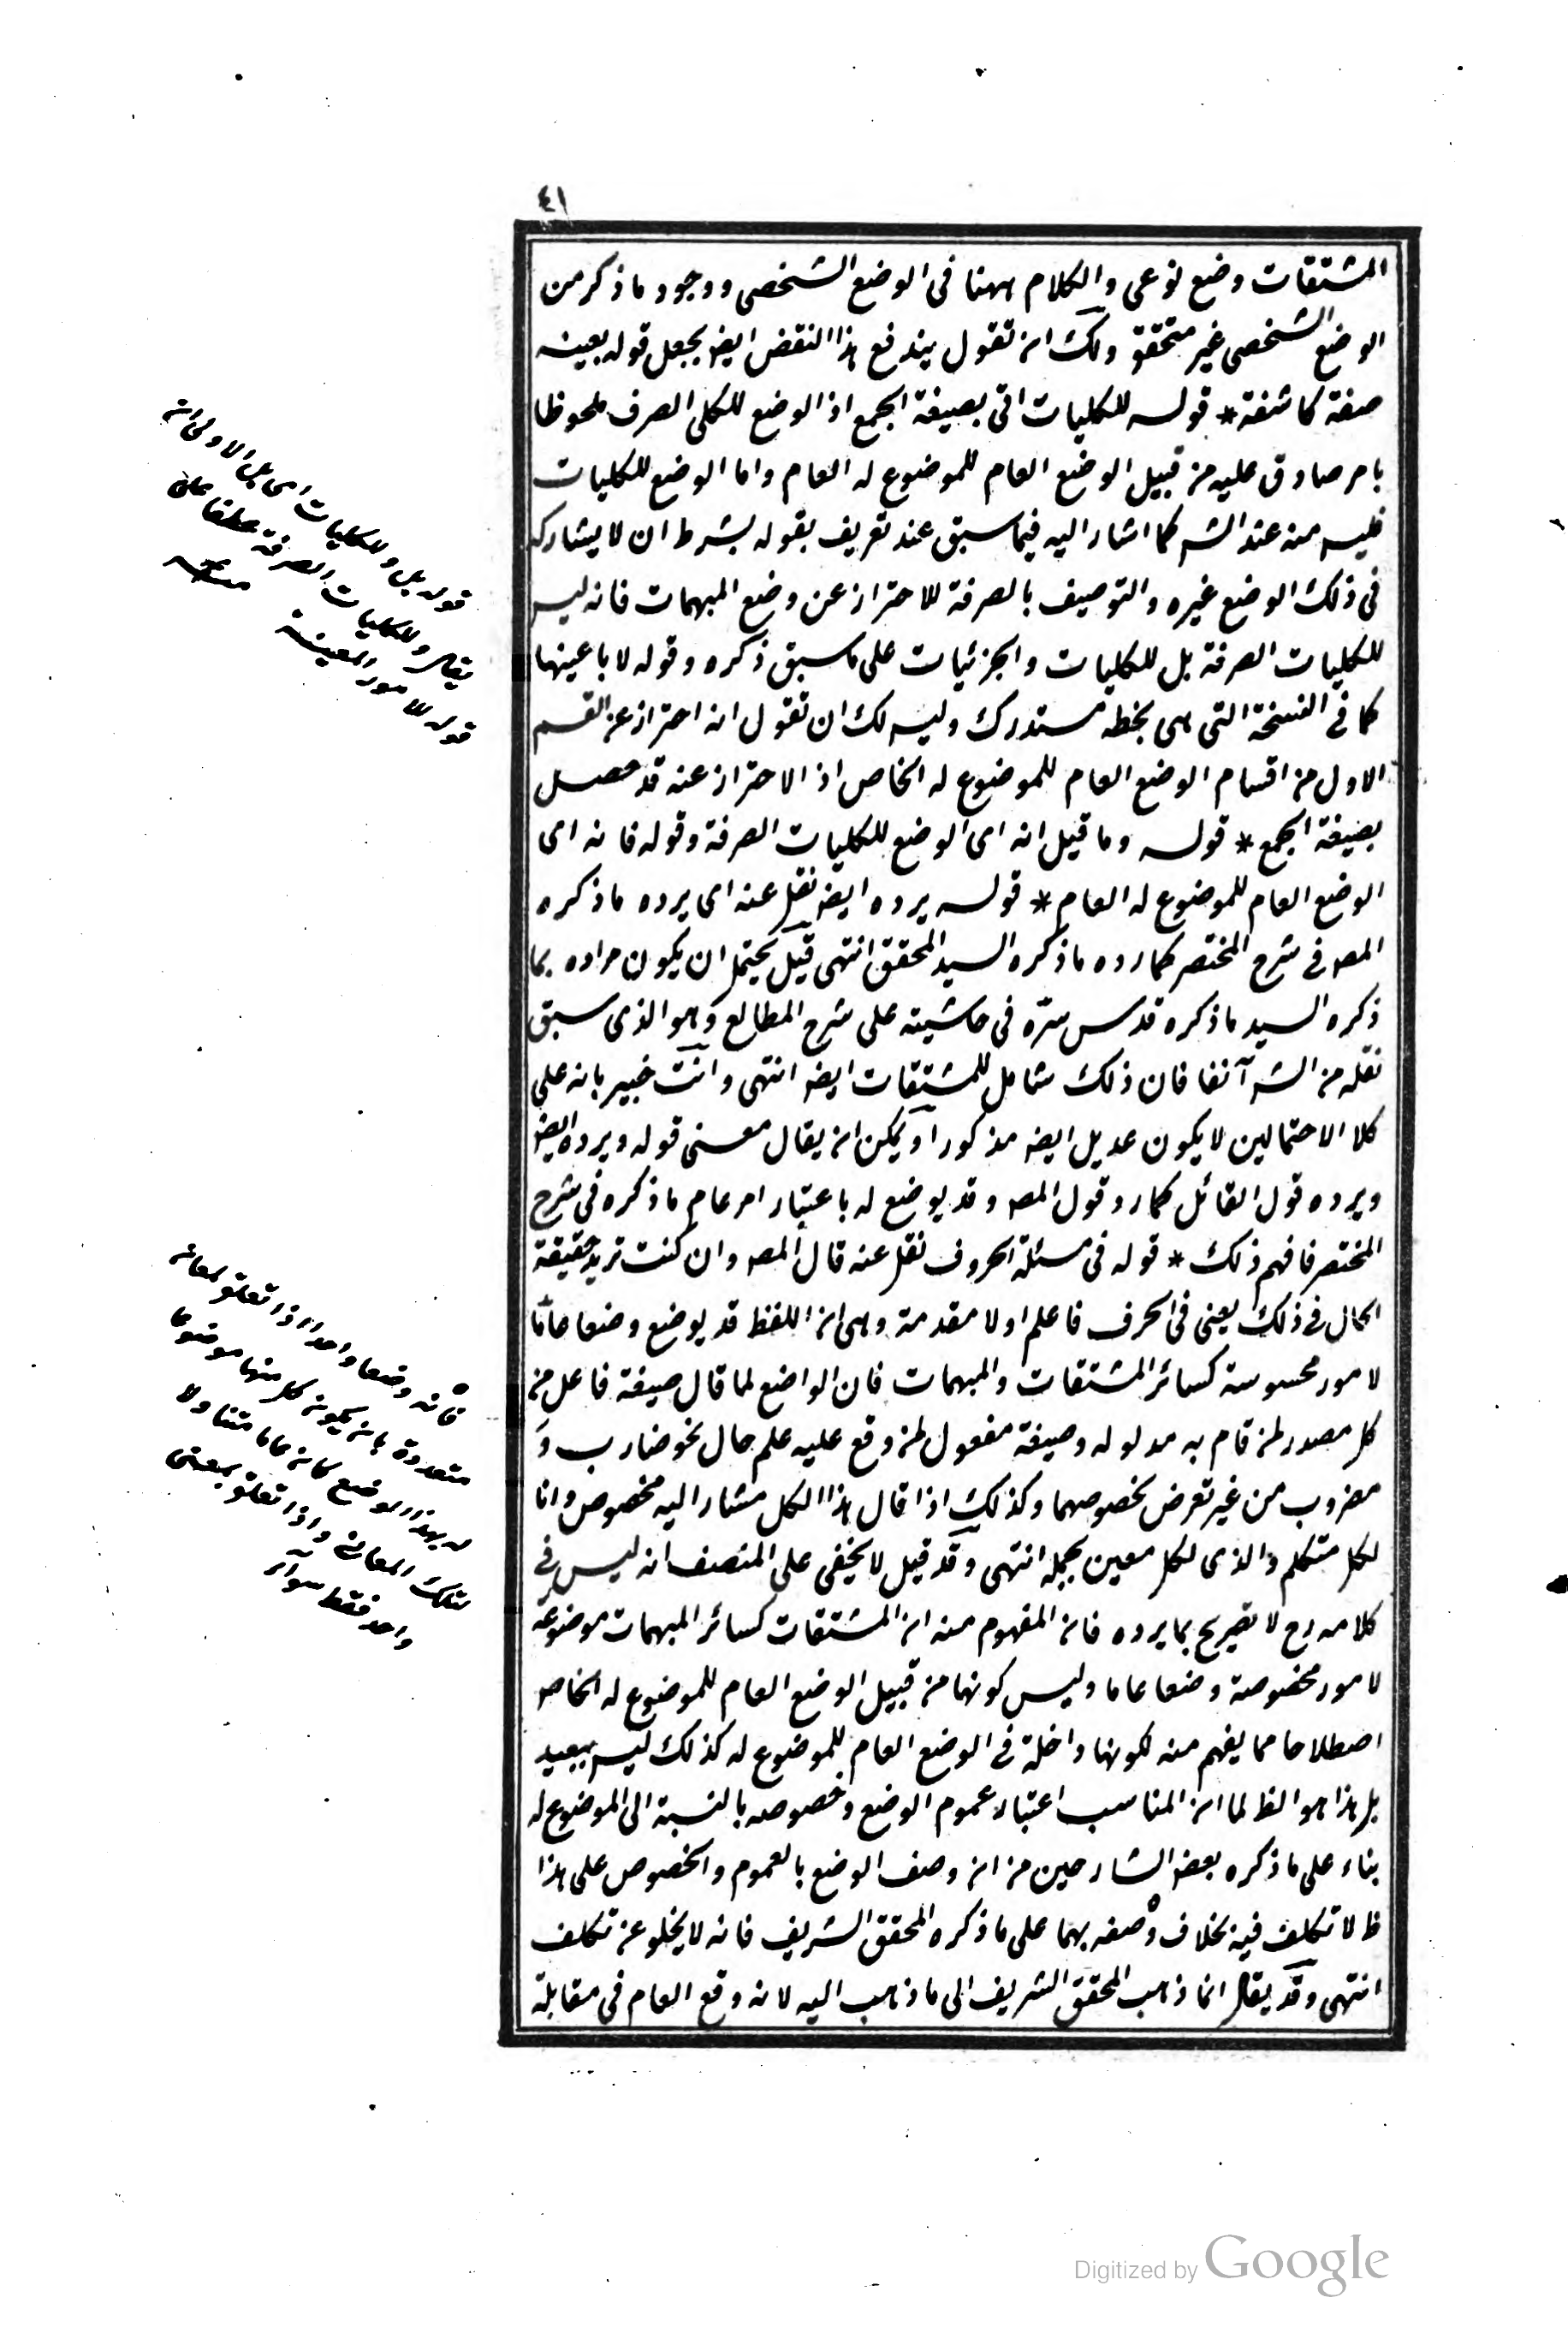 ٤١
المشتقات وضع نوعى والكلام ههنا فى الوضع الشخصى ووجود ما ذكر من
الوضع الشخصى غير متحقق ولك ان تقول يندفع هذا النقض ايضا بجعل قوله بعينه
صفة كاشفة * قوله للكليات اتى بصيغة الجمع اذ الوضع للكلى الصرف ملحوظا
بامر صادق عليه من قبيل الوضع العام للموضوع له العام واما الوضع للكليات
فليس منه عند الشـ كما اشار اليه فيما سبق عند تعريف بقوله بشرط ان لا يشاركه
فى ذلك الوضع غيره والتوصيف بالصرفة للاحتراز عن وضع المبهمات فانه ليس
للكليات الصرفة بل للكليات والجزئيات على ما سبق ذكره وقوله لا باعينها
كما فى النسخة التى هى بخطه مستدرك وليس لك ان تقول انه احتراز عن القسم
الاول من اقسام الوضع العام للموضوع له الخاص اذ الاحتراز عنه قد حصل
بصيغة الجمع * قوله وما قيل انه اى الوضع للكليات الصرفة وقوله فانه اى
الوضع العام للموضوع له العام * قوله يرده ايضا نقل عنه اى يرده ما ذكره
المصـ فى شرح المختصر كما رده ما ذكره السيد المحقق انتهى قيل يحتمل ان يكون مراده بما
ذكره السيد ما ذكره قدس سرّه فى حاشيته على شرح المطالع وهو الذى سبق
نقله من الشـ آنفا فان ذلك شامل للمشتقات ايضا انتهى وانت خبير بانه على
كلا الاحتمالين لا يكون عديل ايضا مذكورا ويمكن ان يقال معنى قوله ويرده ايضا
ويرده قول القائل كما رد قول المصـ وقد يوضع له باعتبار امر عام ما ذكره فى شرح
المختصر فافهم ذلك * قوله فى مسئلة الحروف نقل عنه قال المصـ وان كنت تريد حقيقة
الحال فى ذلك يعنى فى الحرف فاعلم اولا مقدمة وهى ان اللفظ قد يوضع وضعا عامّا
لامور محسوسة كسائر المشتقات والمبهمات فان الواضع لما قال صيغة فاعل من
كل مصدر لمن قام به مدلوله وصيغة مفعول لمن وقع عليه علم حال نحو ضارب و
مضروب من غير تعرض بخصوصهما وكذلك اذا قال هذا الكل مشار اليه مخصوص وانا
لكل متكلم والذى لكل معين بجملة انتهى وقد قيل لا يخفى على المنصف انه ليس فى
كلامه رح لا تصريح بما يرده فان المفهوم منه ان المشتقات كسائر المبهمات موضوعة
لامور مخصوصة وضعا عاما وليس كونها من قبيل الوضع العام للموضوع له الخاص
اصطلاحا مما يفهم منه لكونها داخلة فى الوضع العام للموضوع له كذلك ليس ببعيد
بل هذا هو الظ لما ان المناسب اعتبار عموم الوضع وخصوصه بالنسبة الى الموضوع له
بناء على ما ذكره بعض الشارحين من ان وصف الوضع بالعموم والخصوص على هذا
ظ لا تكلف فيه بخلاف وصفه بهما على ما ذكره المحقق الشريف فانه لا يخلو عن تكلف
انتهى وقد يقال انما ذهب المحقق الشريف الى ما ذهب اليه لانه وقع العام فى مقابلة
قوله بل وللكليات اى بل الاولى ان
يقال وللكليات الصرفة
قوله للامور المعينة
فانه وضعا واحدا اذا تعلق بمعان
متعددة بان يكون كل منها موضوعا
له بهذا الوضع كان عاما متناولا
لتلك المعان واذا تعلق بمعنى
واحد فقط
Digitized by Google